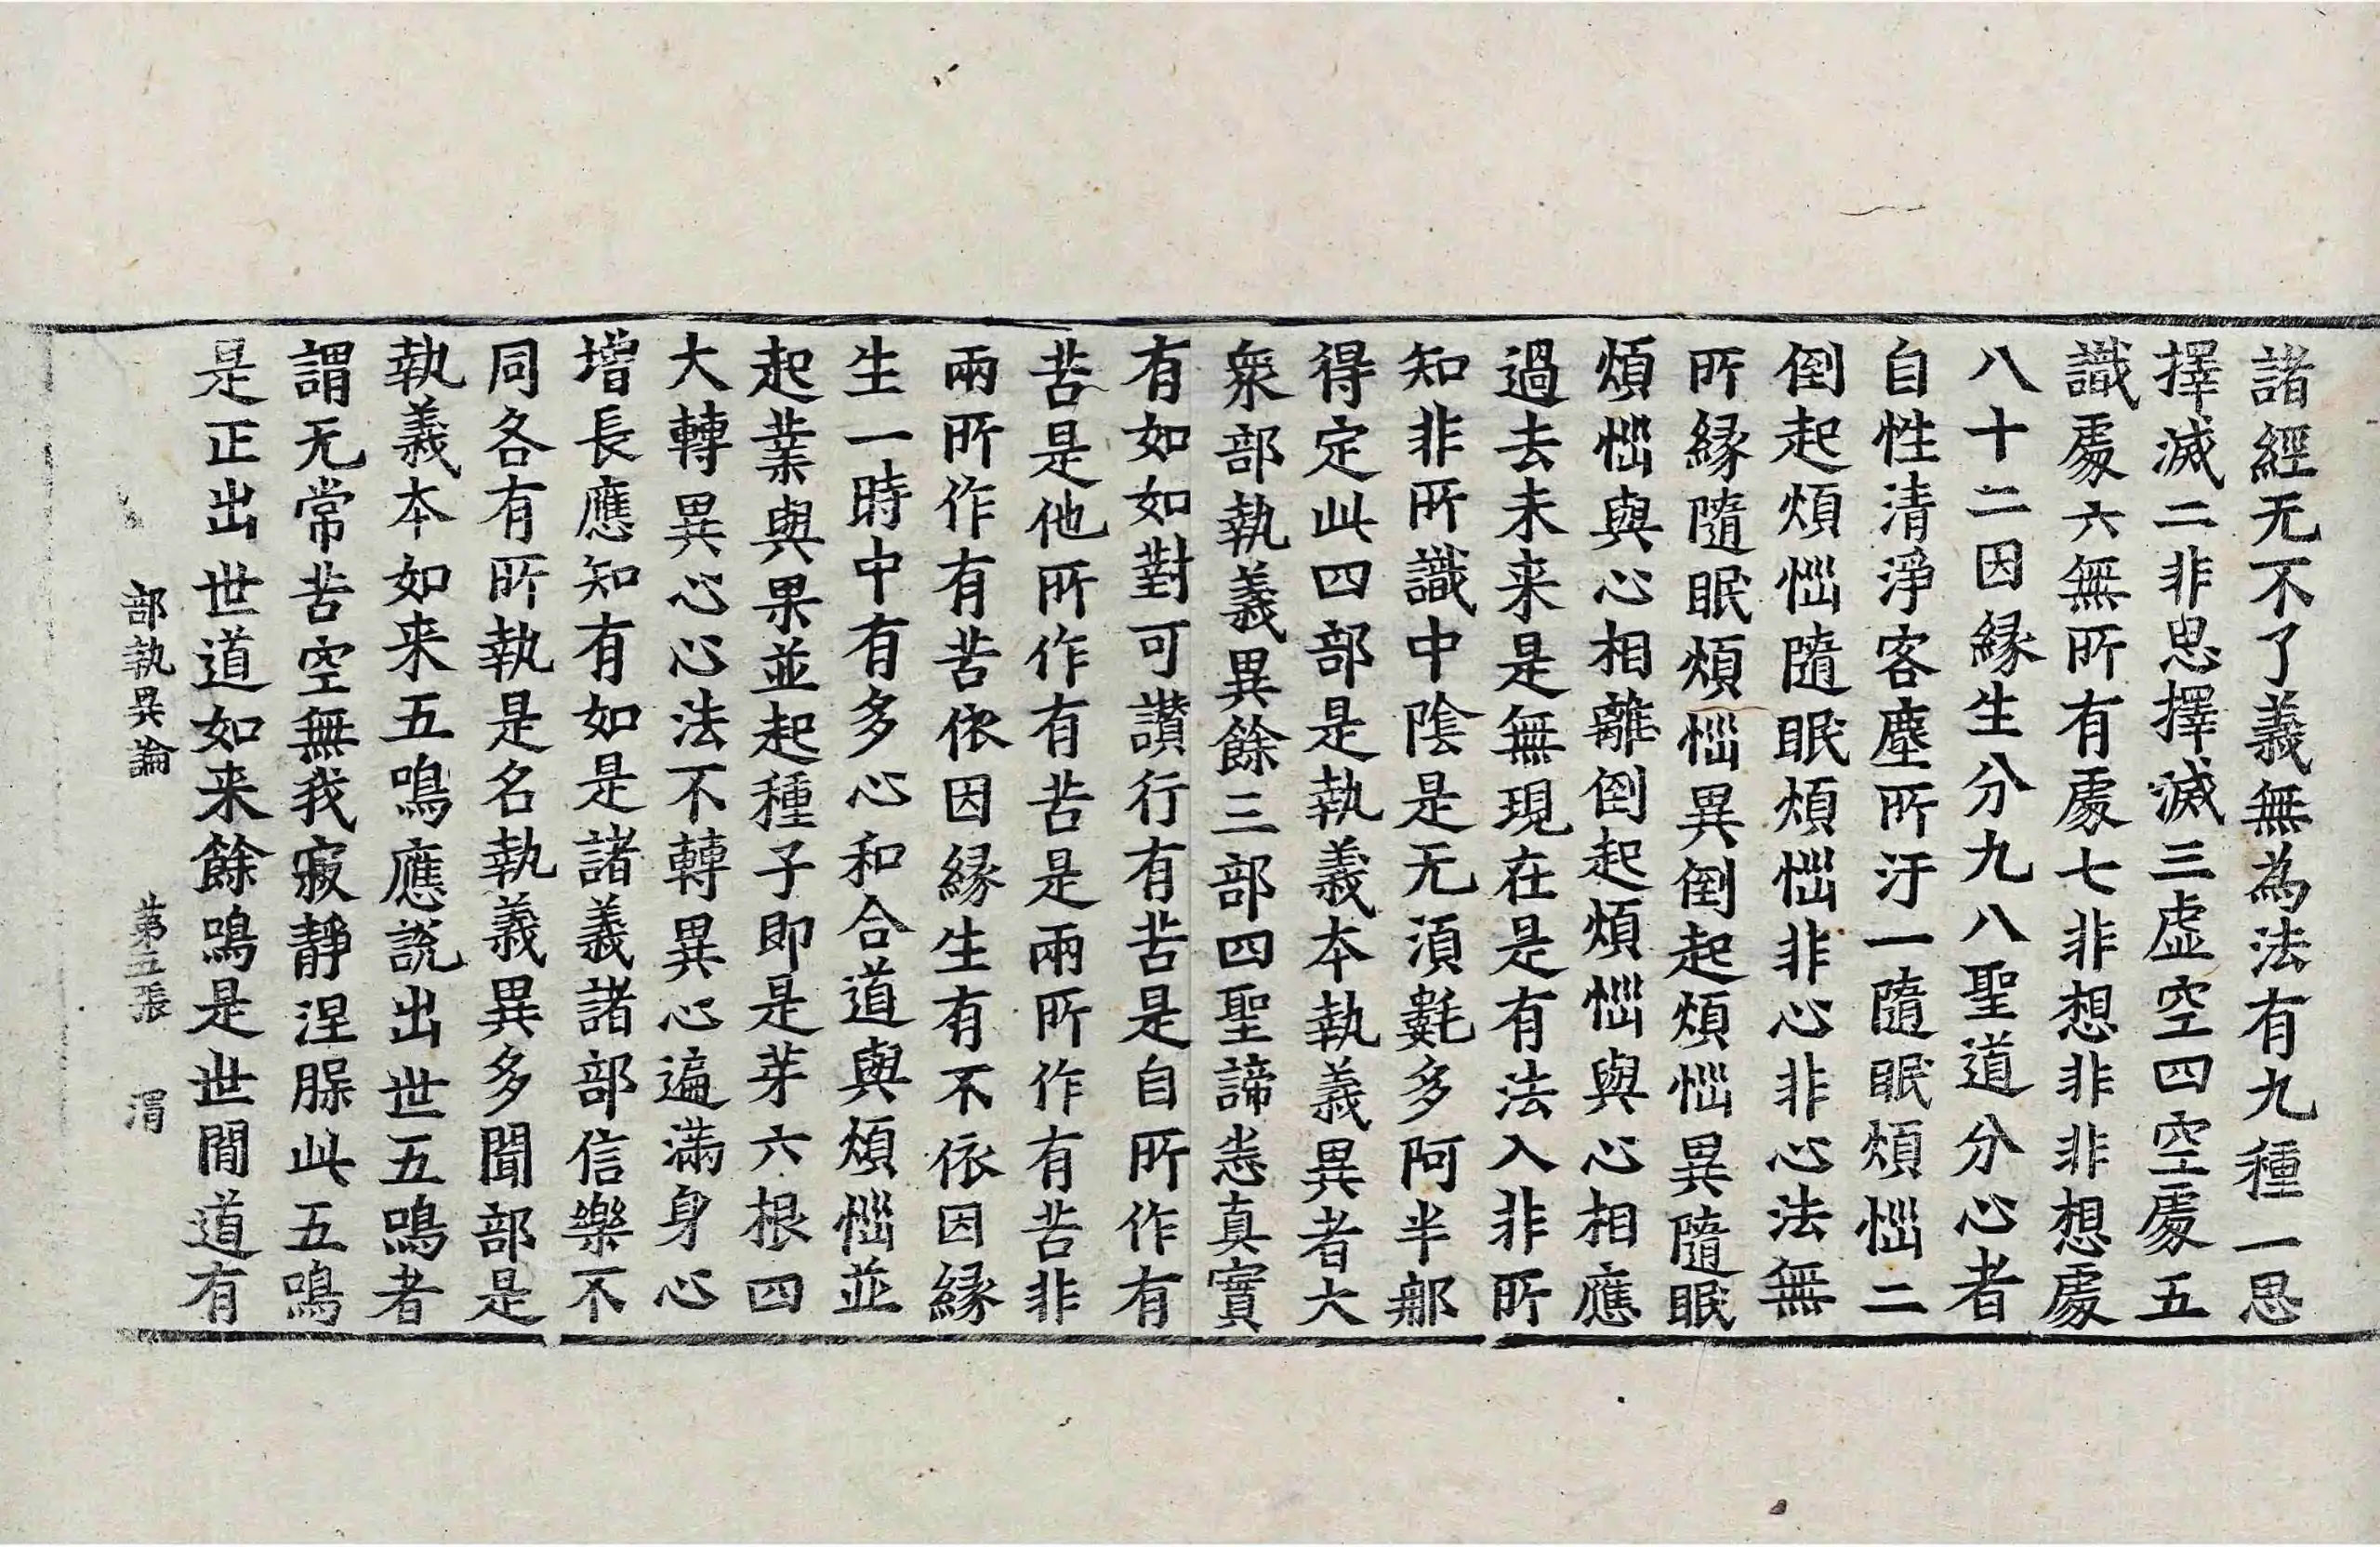 諸經无不了義無為法有九種一思
擇滅二非思擇滅三虛空四空處五
識處六無所有處七非想非非想處
八十二因緣生分九八聖道分心者
自性清淨客塵所汙一隨眠煩惱二
倒起煩惱隨眠煩惱非心非心法無
所緣隨眠煩惱異倒起煩惱異隨眠
煩惱與心相離倒起煩惱與心相應
過去未来是無現在是有法入非所
知非所識中陰是无湏氀多阿半郍
得定此四部是執義本執義異者大
衆部執義異餘三部四聖諦悉真實
有如如對可讚行有苦是自所作有
苦是他所作有苦是兩所作有苦非
兩所作有苦依因緣生有不依因緣
生一時中有多心和合道與煩惱並
起業與果並起種子即是芽六根四
大轉異心心法不轉異心遍滿身心
增長應知有如是諸義諸部信樂不
同各有所執是名執義異多聞部是
執義本如来五鳴應說出世五鳴者
謂无常苦空無我寂靜涅槃此五鳴
是正出世道如来餘鳴是世間道有
部執異論　第五張　渭